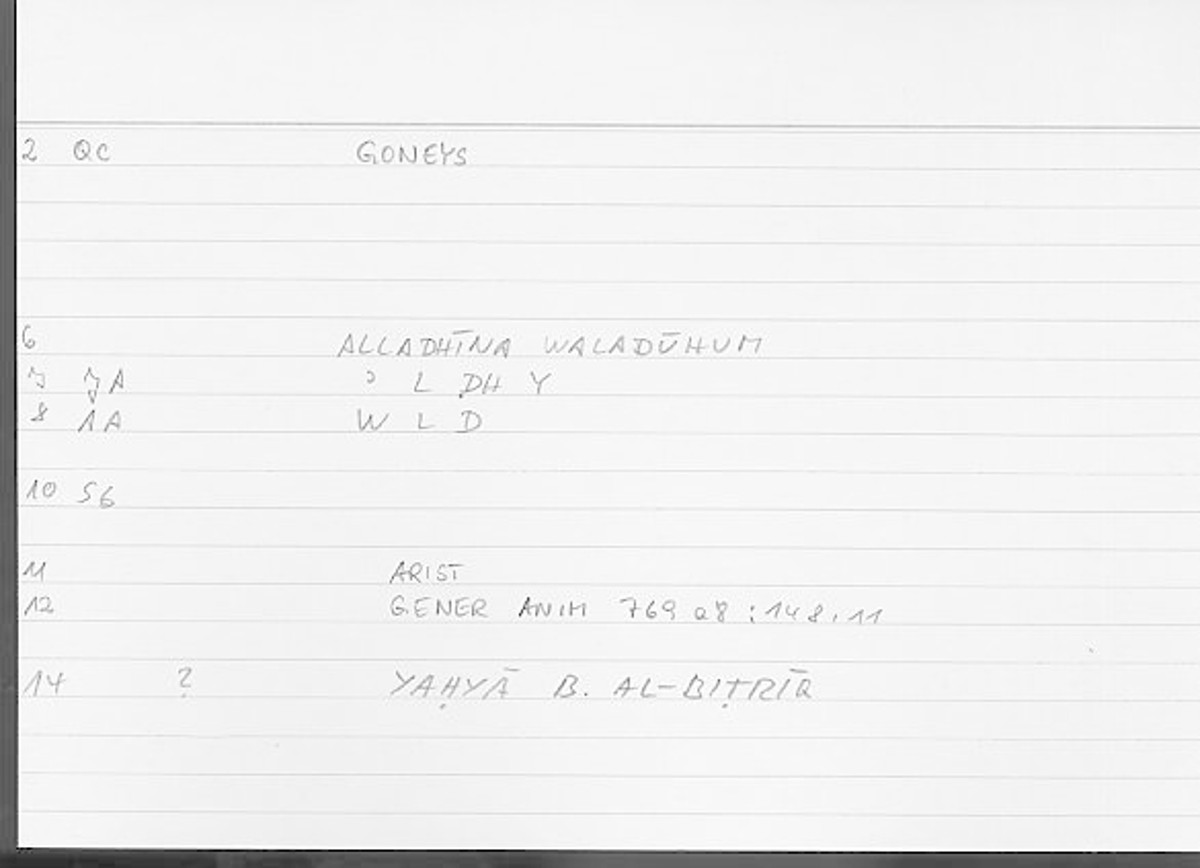 2 QC GONEYS
6 ALLADHĪNA WALADŪHUM
7 7A ʾ L DH Y
8 1A W L D
10 56
11 ARIST
12 GENER ANIM 769 a8 : 148,11
14 ? YAḤYĀ B. AL-BIṬRĪQ